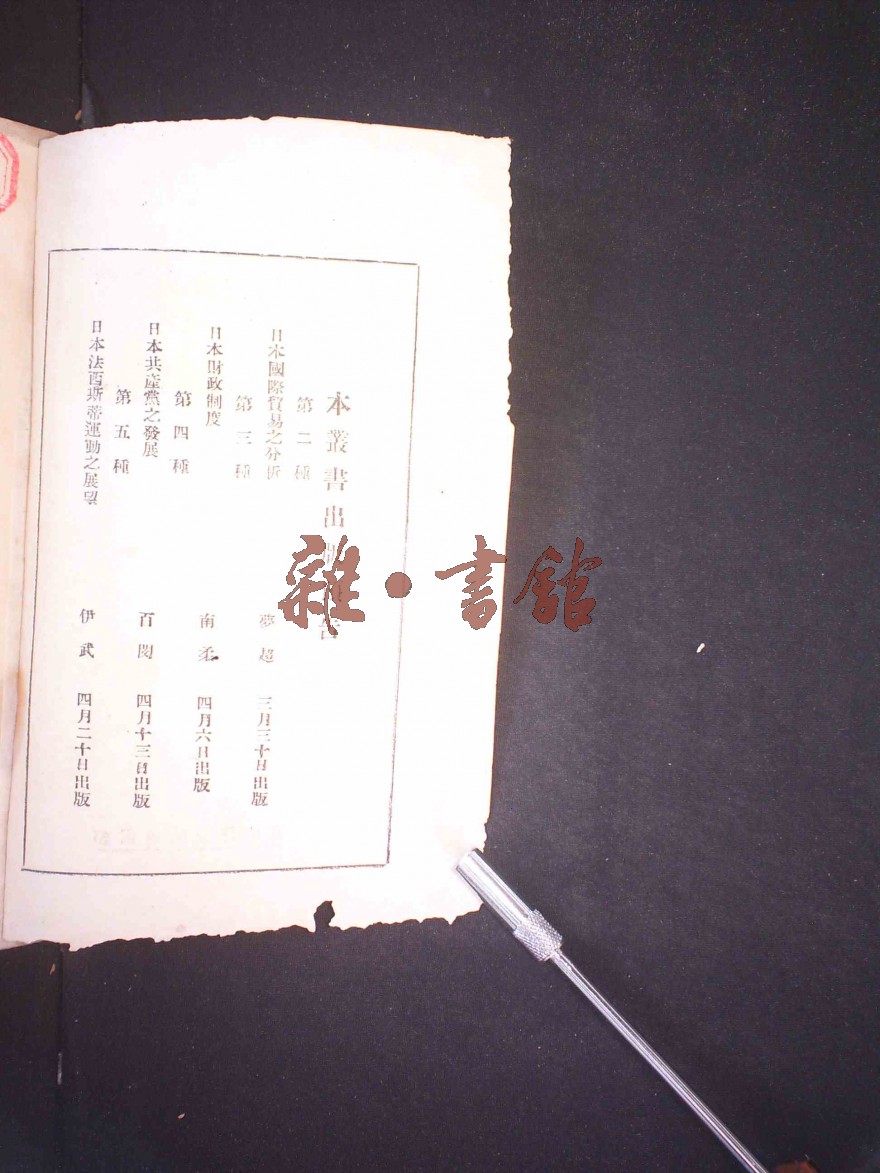 本叢書出版預告
第二種
日本國際貿易之分析 夢超 三月三十日出版
第三種
日本財政制度 南柔 四月六日出版
第四種
日本共產黨之發展 百閔 四月十三日出版
第五種
日本法西斯蒂運動之展望 伊武 四月二十日出版
雜·書館